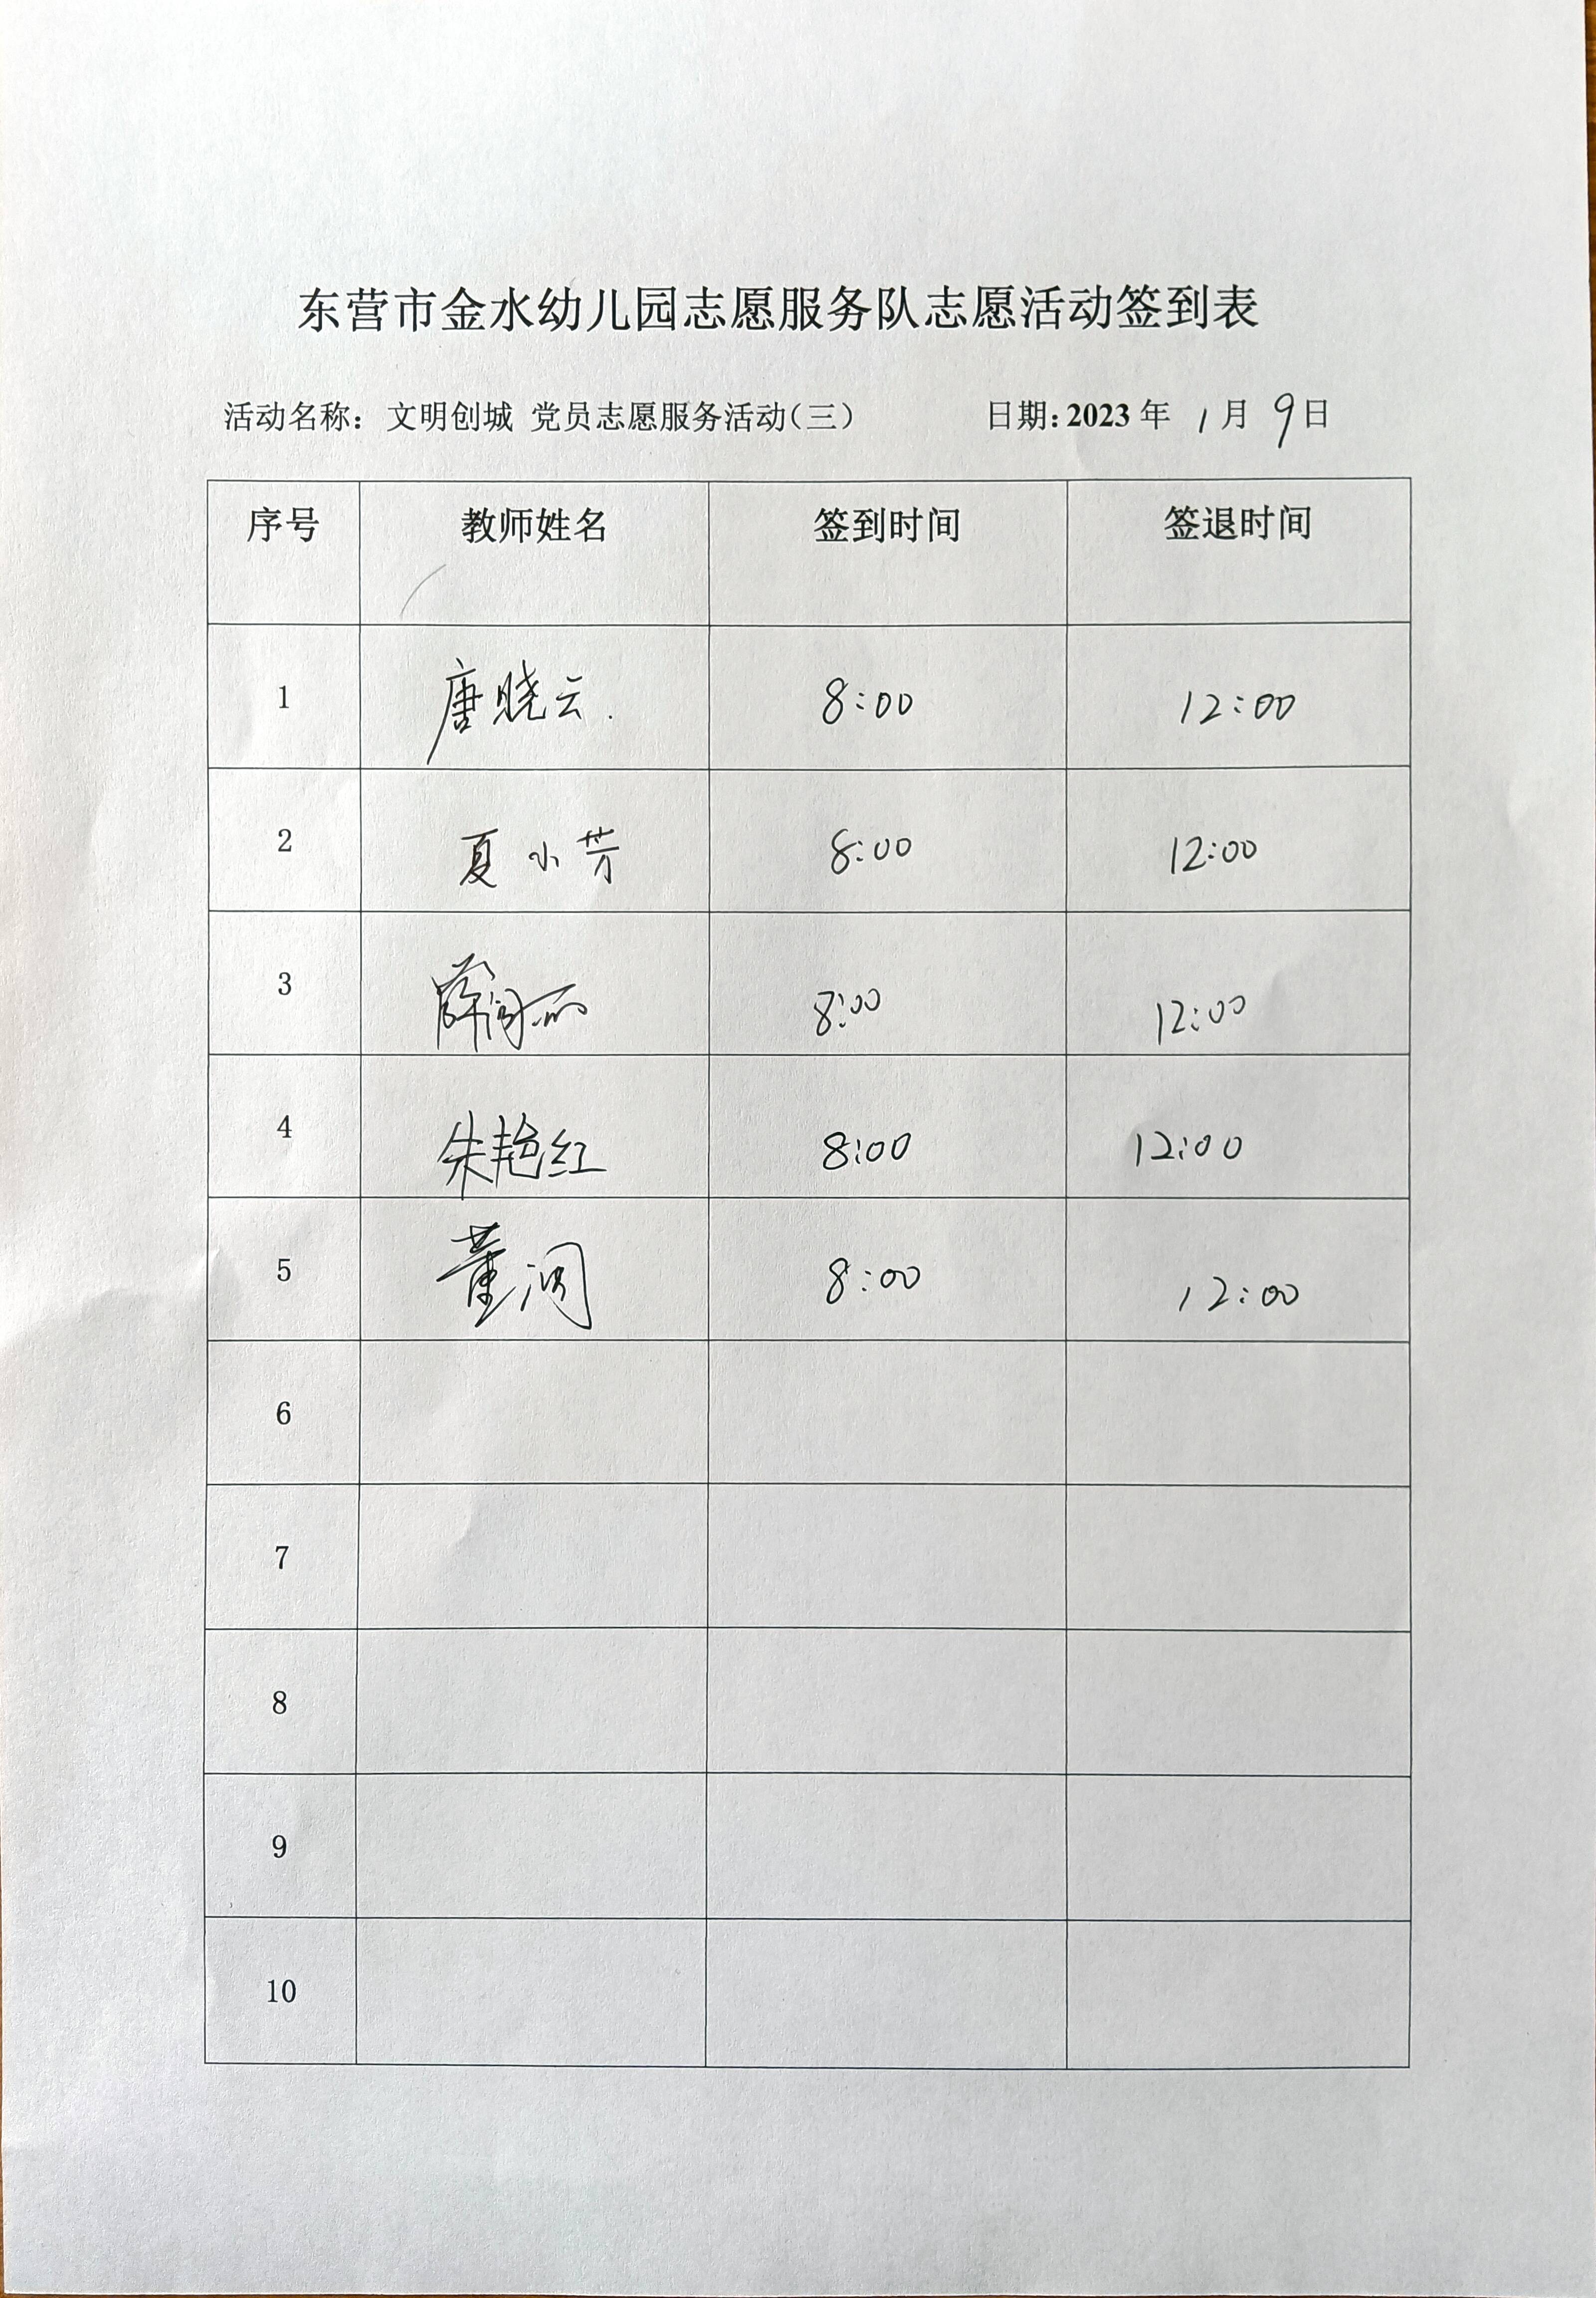 东营市金水幼儿园志愿服务队志愿活动签到表
活动名称：文明创城 党员志愿服务活动（三） 日期：2023 年 1 月 9 日
序号 教师姓名 签到时间 签退时间
1 唐晓云. 8:00 12:00
2 夏小芳 8:00 12:00
3 薛闰丽 8:00 12:00
4 朱艳红 8:00 12:00
5 董润 8:00 12:00
6
7
8
9
10